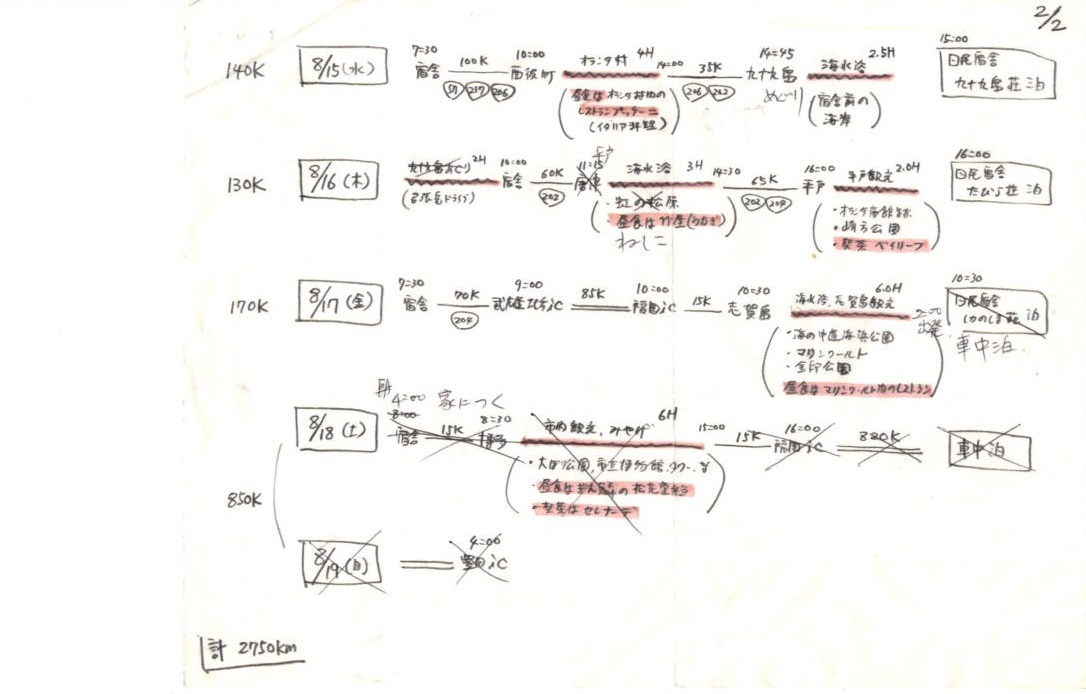 2/2
7=30 10=00 4H 14=00 14=45 2.5H 15=00
140K 8/15(水) 宿舎 100K 西彼町 オランダ村 35K 九十九島 海水浴 国民宿舎
217 206 206 262 めぐり 九十九島荘 泊
(昼食はオランダ村内の (宿舎前の
レストラン 海岸)
(イタリア料理)
2H 10=00 11=15 平戸 3H 14=30 16=00 2.0H 16=00
130K 8/16(木) 九十九島めぐり 宿舎 60K 唐津 海水浴 65K 平戸 平戸散文 国民宿舎
202 ・虹の松原 202 204 ・オランダ商館跡 たびら荘 泊
・昼食は竹屋(うなぎ) ・崎方公園
ねしこ ・喫茶 ベイリーフ
7=30 9=00 10=00 10=30 6.0H 10=30
170K 8/17(金) 宿舎 70K 武雄北方iC 85K 福岡iC 15K 志賀島 海水浴、志賀島散文 国民宿舎
204 出発 しかのしま荘 泊
・海の中道海浜公園 車中泊.
・マリンワールド
・金印公園
昼食はマリンワールド内のレストラン
朝 4=00 家につく
8=00 8=30 6H 15=00 16=00
8/18(土) 宿舎 15K 博多 市内散文、みやげ 15K 福岡iC 820K 車中泊
・大濠公園、市立博物館、タワー、
・昼食は
・喫茶は
850K
4=00
8/19(日) 豊田iC
計 2750km